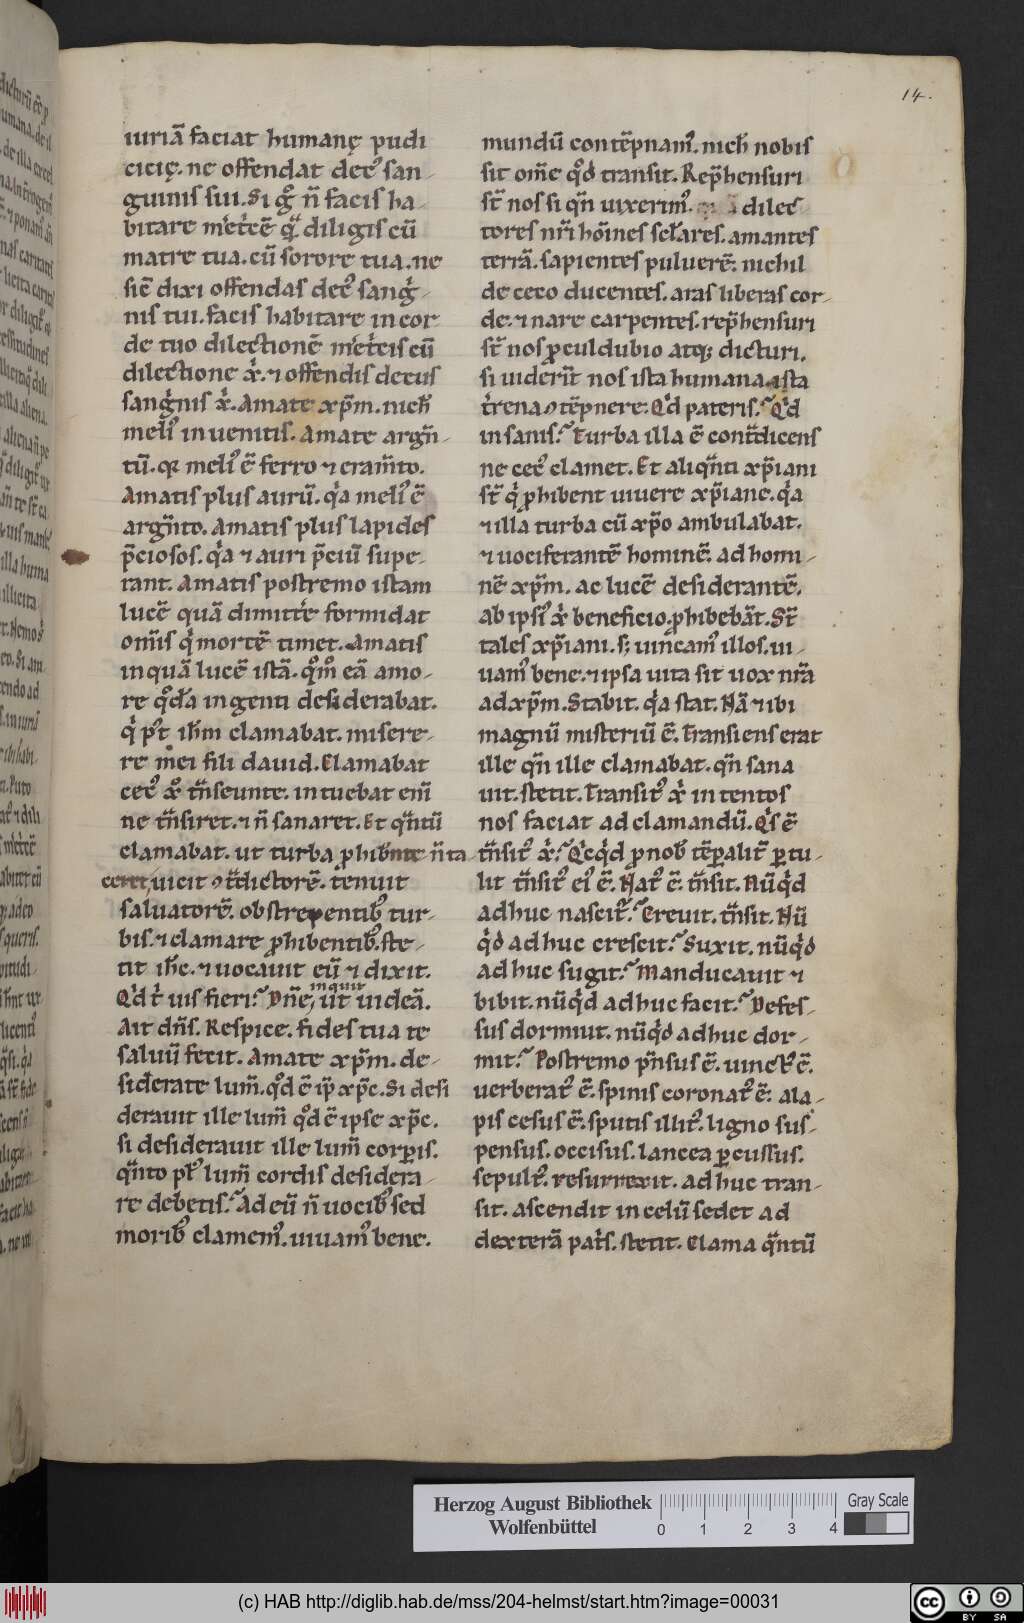 14.
iuriã faciat humanę pudi
cicię. ne offendat dec᷒ san-
guinis sui. Si gͦ n̄ facis ha-
bitare me̍t̍cē qͣ̄ diligis cū
matre tua. cū sorore tua. ne
sic̄ dixi offendas dec᷒ sang̍-
nis tui. facis habitare in cor
de tuo dilectionē me̍t̍cis cū
dilectione x̍. ⁊ offendis decus
sang̍nis x̍. Amate xp̄m. nich̄
meli᷒ inuenitis. Amate argn̄-
tū. qꝛ meli᷒ ē ferro ⁊ eram̄to.
Amatis plus aurū. q̍a meli᷒ ē
argn̄to. Amatis plus lapides
p̄ciosos. q̍a ⁊ auri p̄ciū supe-
rant. Amatis postremo istam
lucē quā dimitt̍e formidat
om̄is q̍ mortē timet. Amatis
inquā lucē istā. qͦm̊ eā amo-
re qͦdā ingenti desiderabat.
q̍ p᷒t ih̄m clamabat. misere-
re mei fili dauid. Clamabat
cec᷒ xͦ tn̄seunte. intuebat em̄
ne tn̄siret. ⁊ n̄ sanaret. Et qͣ̄tū
clamabat. ut turba ꝓhib̄nte n̄ ta-
ceret, uicit ꝯt̄dictorē. tenuit
saluatorē. obstrepentib᷒ tur-
bis. ⁊ clamare ꝓhibentib᷒. ste-
tit ih̄c. ⁊ uocauit eū ⁊ dixit.
Q̍d t̍ uis fieri? Dn̄e, inquit ut uideā.
Ait dn̄s. Respice. fides tua te
saluū fecit. Amate xp̄m. de-
siderate lum̄. qͦd ē ip̄ xp̄c. Si desi
derauit ille lum̄ qͦd ē ipse xp̄c.
si desiderauit ille lum̄ corꝑis.
qͣ̄nto pl᷒ lum̄ cordis desidera-
re debetis? Ad eū n̄ uocib᷒ sed
morib᷒ clamem᷒. uiuam᷒ bene.
mundū contēpnam᷒. nich̄ nobis
sit om̄e qͦd transit. Rep̄hensuri
st̄ nos si qn̄ uixerim᷒. dilec-
tores nr̄i hōines sc̄lares. amantes
terrā. sapientes puluerē. nichil
de ceco ducentes. aras liberas cor-
de. ⁊ nare carpentes. rep̄hensuri
st̄ nos ꝓculdubio atq; dicturi.
si uider̄it nos ista humana. ista
t̍rena ꝯtēpnere. Q̍d pateris? Q̍d
insanis? Turba illa ē cont̄dicens
ne cec᷒ clamet. Et aliqͣ̄nti xp̄iani
st̄ q̍ ꝓhibent uiuere xp̄iane. q̍a
⁊ illa turba cū xp̄o ambulabat.
⁊ uociferantē hominē. ad homi-
nē xp̄m. ac lucē desiderantē.
ab ipsi᷒ x̍ beneficio. ꝓhibebāt. St̄
tales xp̄iani. s; uincam᷒ illos. ui-
uam᷒ bene. ⁊ ipsa uita sit uox nr̄a
ad xp̄m. Stabit. q̍a stat. Nā ⁊ ibi
magnū misteriū ē. Transiens erat
ille qn̄ ille clamabat. qn̄ sana
uit. stetit. Transit᷒ x̍ intentos
nos faciat ad clamandū. Q̍s ē
tn̄sit᷒ x̍? Q̍cq̍d ꝓ nob̄ tēꝑalit̄ ꝑtu-
lit tn̄sit᷒ ei᷒ ē. Nat᷒ ē. tn̄sit. Nūq̍d
adhuc nascit᷒? Creuit. tn̄sit. Nū
q̍d adhuc crescit? Suxit. nūq̍d
adhuc sugit? Manducauit ⁊
bibit. nūq̍d adhuc facit? Defes-
sus dormiut. nūq̍d adhuc dor-
mit? Postremo p̄nsus ē. uinct᷒ ē.
uerberat᷒ ē. spinis coronat᷒ ē. ala-
pis cesus ē. sputis illit᷒. ligno sus-
pensus. occisus. lancea ꝑcussus.
sepult᷒. resurrexit. adhuc tran-
sit. ascendit in celū sedet ad
dexterā pat̍s. stetit. Clama qͣ̄ntū
Herzog August Bibliothek
Wolfenbüttel
0 1 2 3 4
Gray Scale
(c) HAB http://diglib.hab.de/mss/204-helmst/start.htm?image=00031
cc BY SA